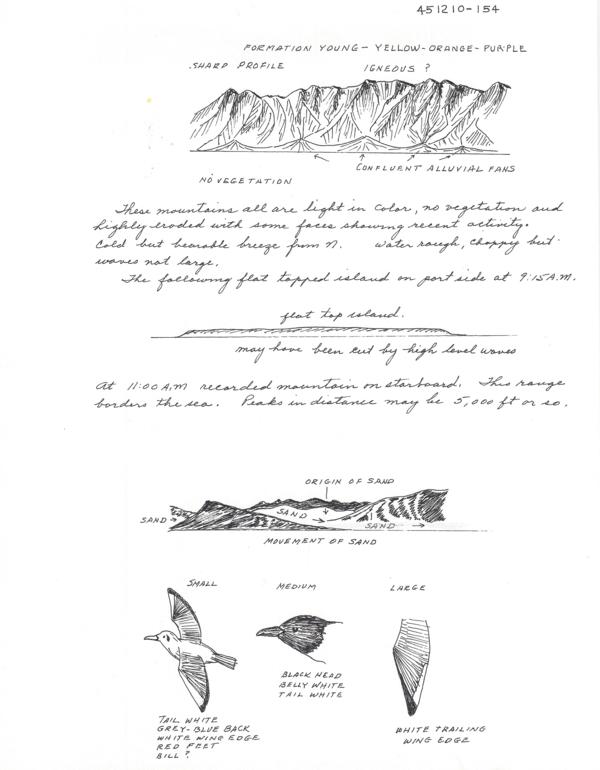 451210-154
FORMATION YOUNG - YELLOW-ORANGE-PURPLE
SHARP PROFILE IGNEOUS ?
CONFLUENT ALLUVIAL FANS
NO VEGETATION
These mountains all are light in color, no vegetation and
highly eroded with some faces showing recent activity.
Cold but bearable breeze from N. Water rough, choppy but
waves not large.
The following flat topped island on port side at 9:15 A.M.
flat top island.
may have been cut by high level waves
At 11:00 A.M recorded mountain on starboard. This range
borders the sea. Peaks in distance may be 5,000 ft or so.
ORIGIN OF SAND
SAND
SAND
SAND
MOVEMENT OF SAND
SMALL MEDIUM LARGE
BLACK HEAD
BELLY WHITE
TAIL WHITE
TAIL WHITE
GREY-BLUE BACK
WHITE WING EDGE
RED FEET
BILL ?
WHITE TRAILING
WING EDGE